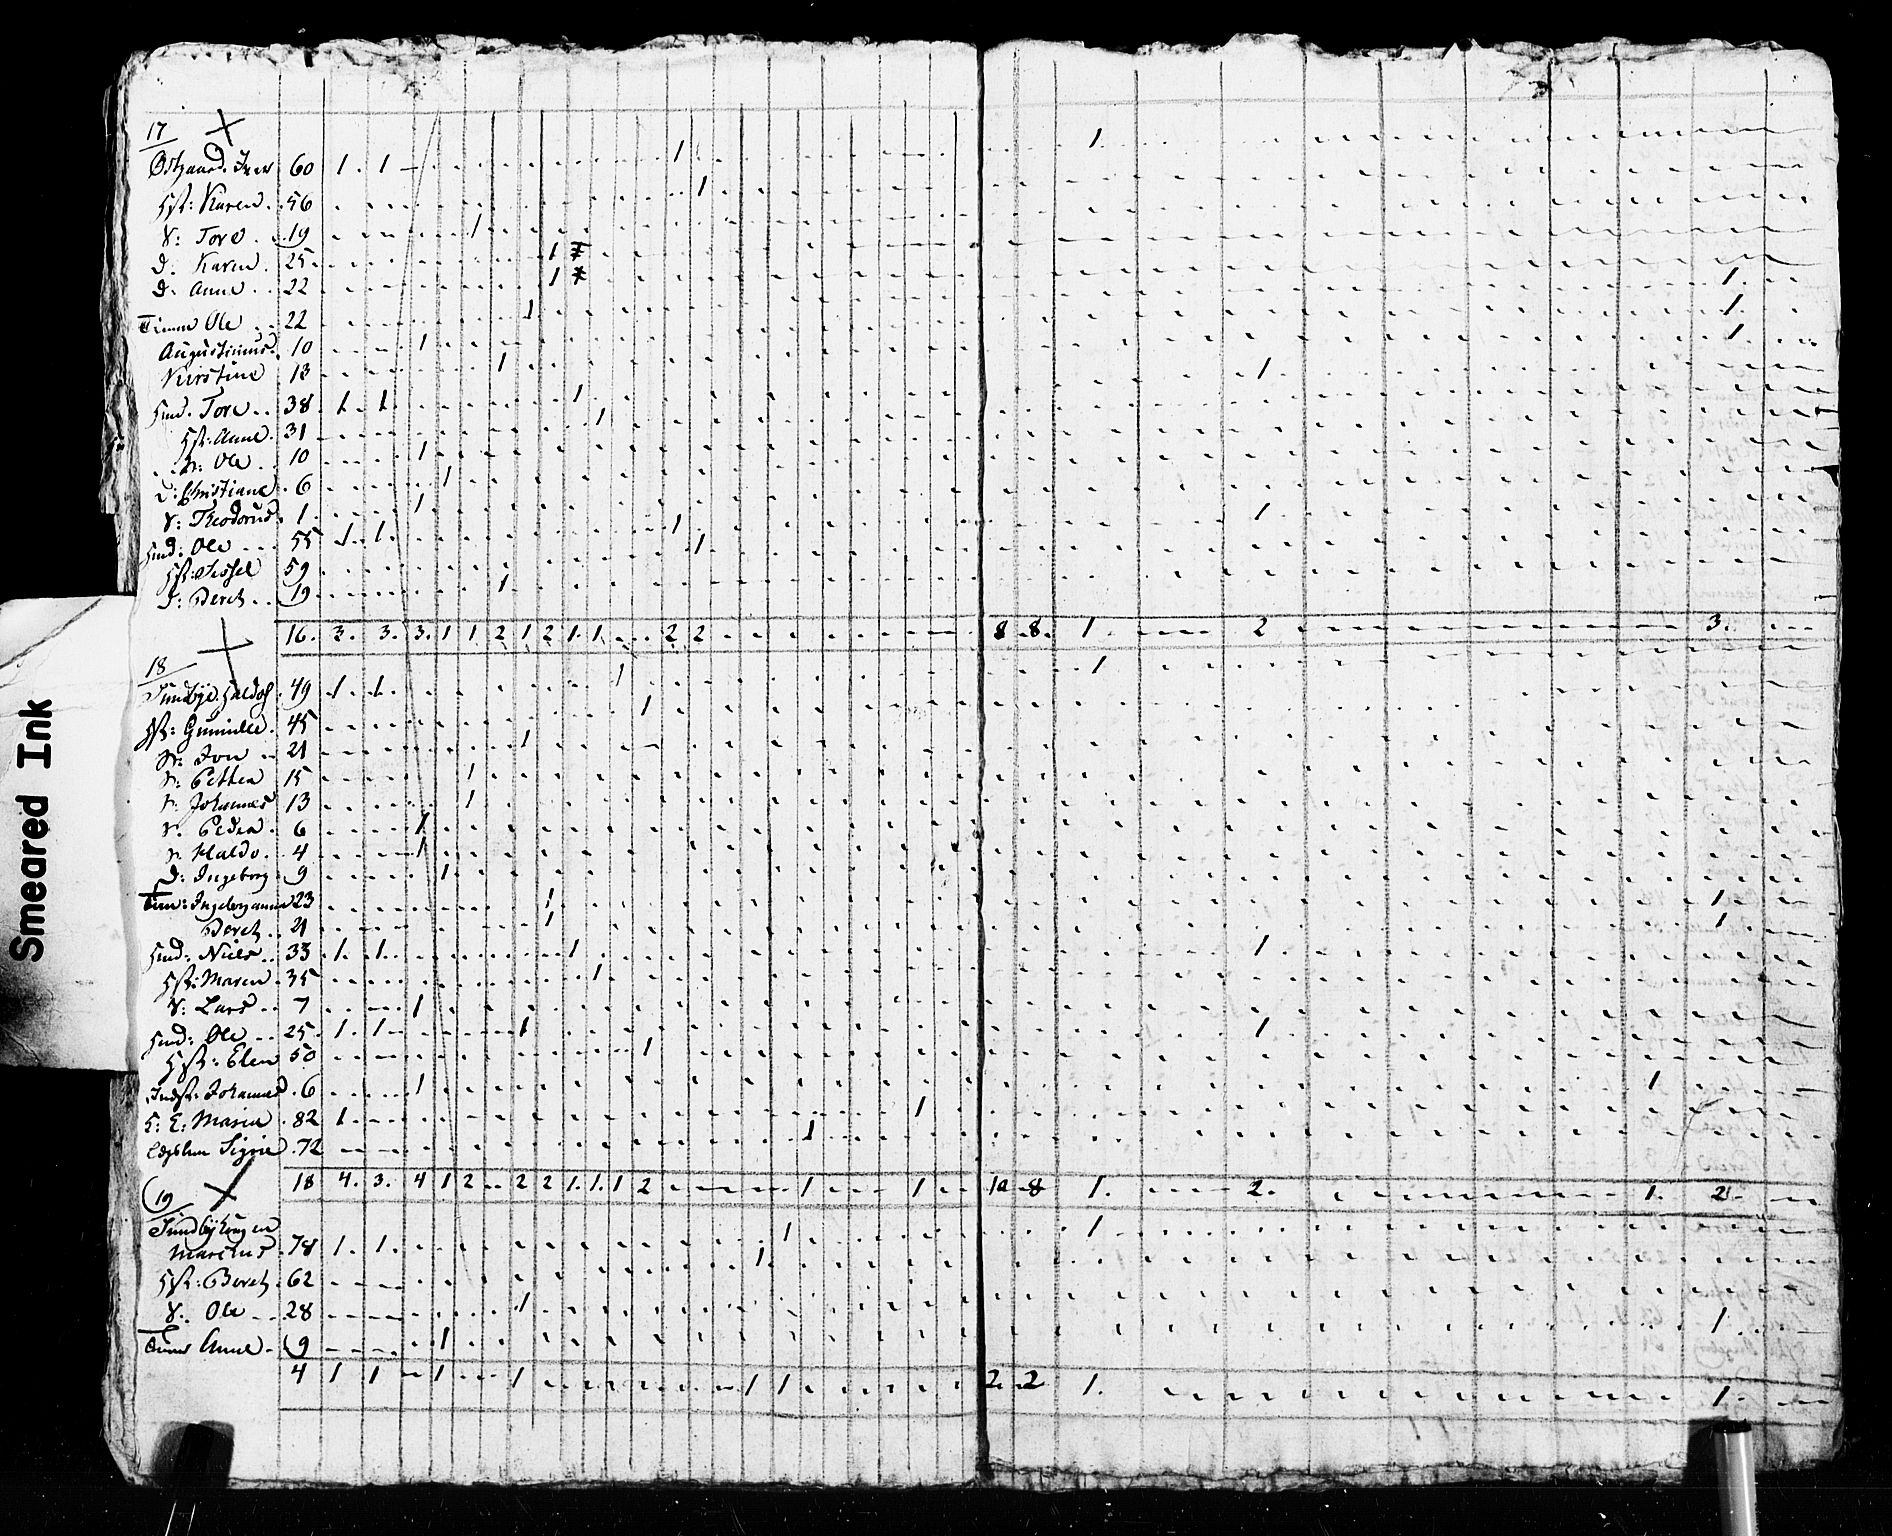 17
Østgaard. Iver 60 1. 1. 1 1.
Hst: Karen. 56 1
S: Tore 19 1
D. Karen. 25 1
D. Anne 22 1 1.
Ole 22 1 1.
Augustinus. 10 1 1
Kirstine 13 1 1
Hmd. Tore 38 1. 1. 1
Hst: Anne. 31 1
Ole 10 1
D: Christiane 6 1
S: Theodorus. 1 1 1
Hmd: Ole 55 1 1 1
Hst: Sissel 59 1
D: Beret 19 1
16. 3. 3. 3. 1 1. 2 1 2 1. 1 2 2 8 8. 1 2 3.
18
Haldo 49 1 1 1 1
Hst: Gunnild. 45 1
S: Jon 21 1
S: Petter 15 1
S: Johannes 13 1
S. Peder 6 1
S. Haldo 4 1
D: Ingeborg 9 1
Ingeborganna 23 1 1
Beret 21 1 1
Hmd: Niels 33 1 1 1 1
Hst: Maren 35 1
S: Lars 7 1
Hmd: Ole 25 1 1 1 1
Hst: Elen 50 1
Johannes 6 1 1
E: Maria 82 1 1
Sigrie 72 1
18 4. 3. 4 1 2 2 2 1. 1. 1 2 1 1 10 8 1. 2. 1. 2
19
Marcus 78 1 1. 1 1
Hst: Beret 62 1
S. Ole 28 1 1
Anne 9 1
4 1 1 1 1 1 1 2 2 1. 1
Smeared Ink